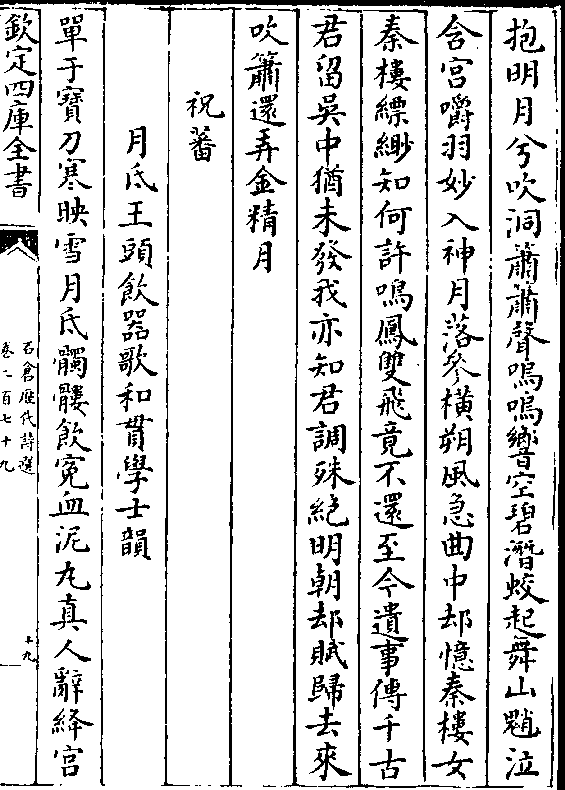 抱明月兮吹洞簫簫聲嗚嗚響空碧潛蛟起舞山魈泣
含宮嚼羽妙入神月落參橫朔風急曲中却憶秦樓女
秦樓縹緲知何許鳴鳳雙飛竟不還至今遺事傳千古
君留吳中猶未發我亦知君調殊絶明朝却賦歸去來
吹簫還弄金精月
祝蕃
月氏王頭飲器歌和貫學士韻
單于寶刀寒映雪月氏髑髏飲寃血泥丸真人辭絳宮
欽定四庫全書
石倉歷代詩選
卷二百七十九
十九